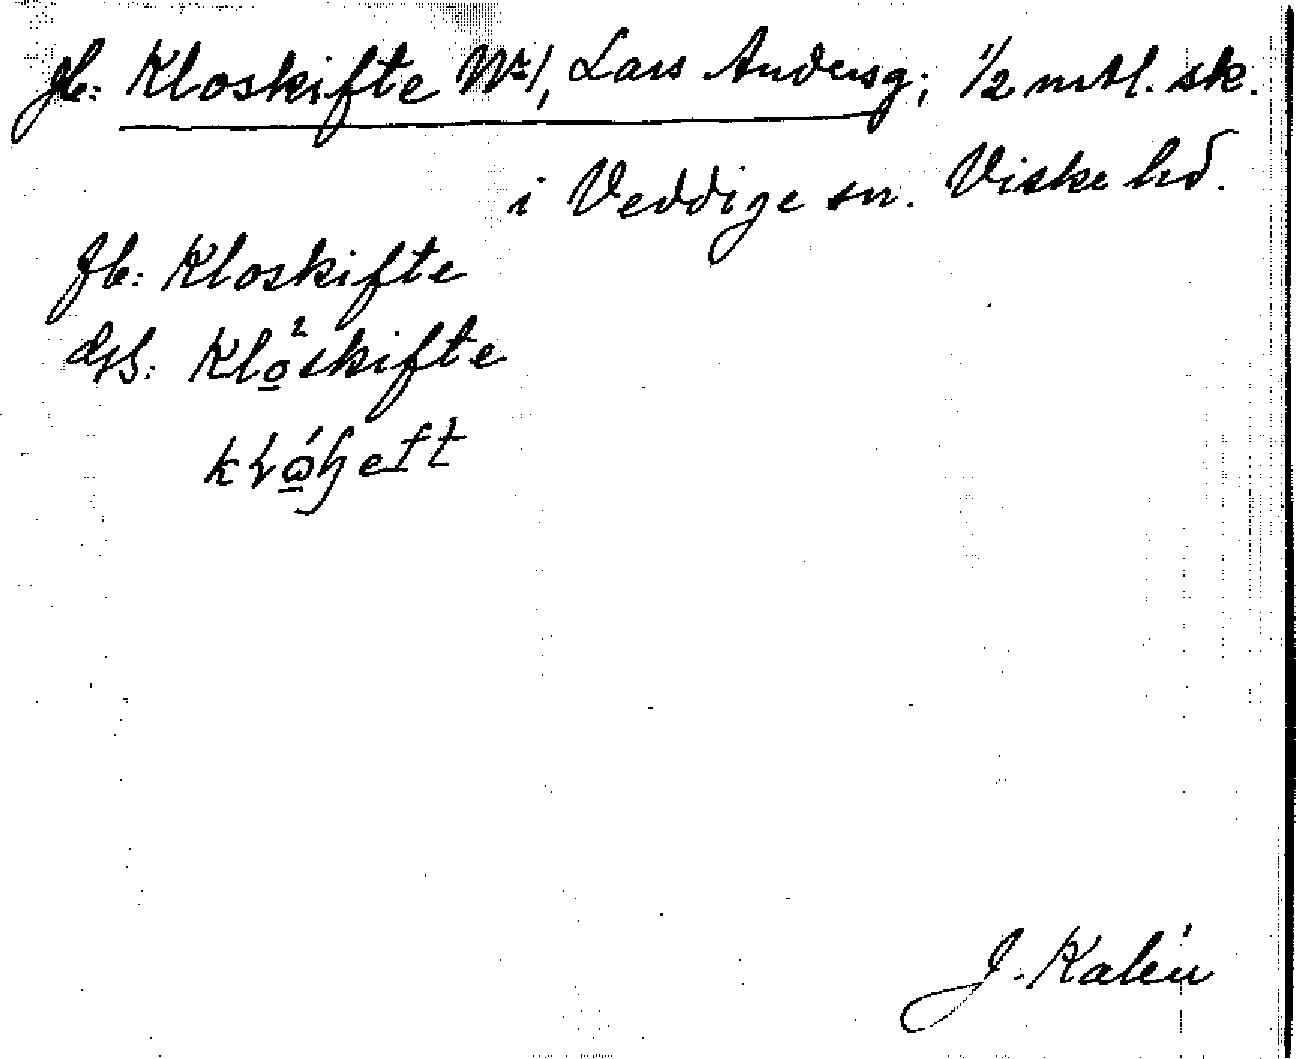 Jb: Kloskifte Nr 1, Lars Andersg; 1/2 mtl. sk.
i Veddige sn. Viske hd.
Jb: Kloskifte
GS: Klo²skifte
J. Kalén